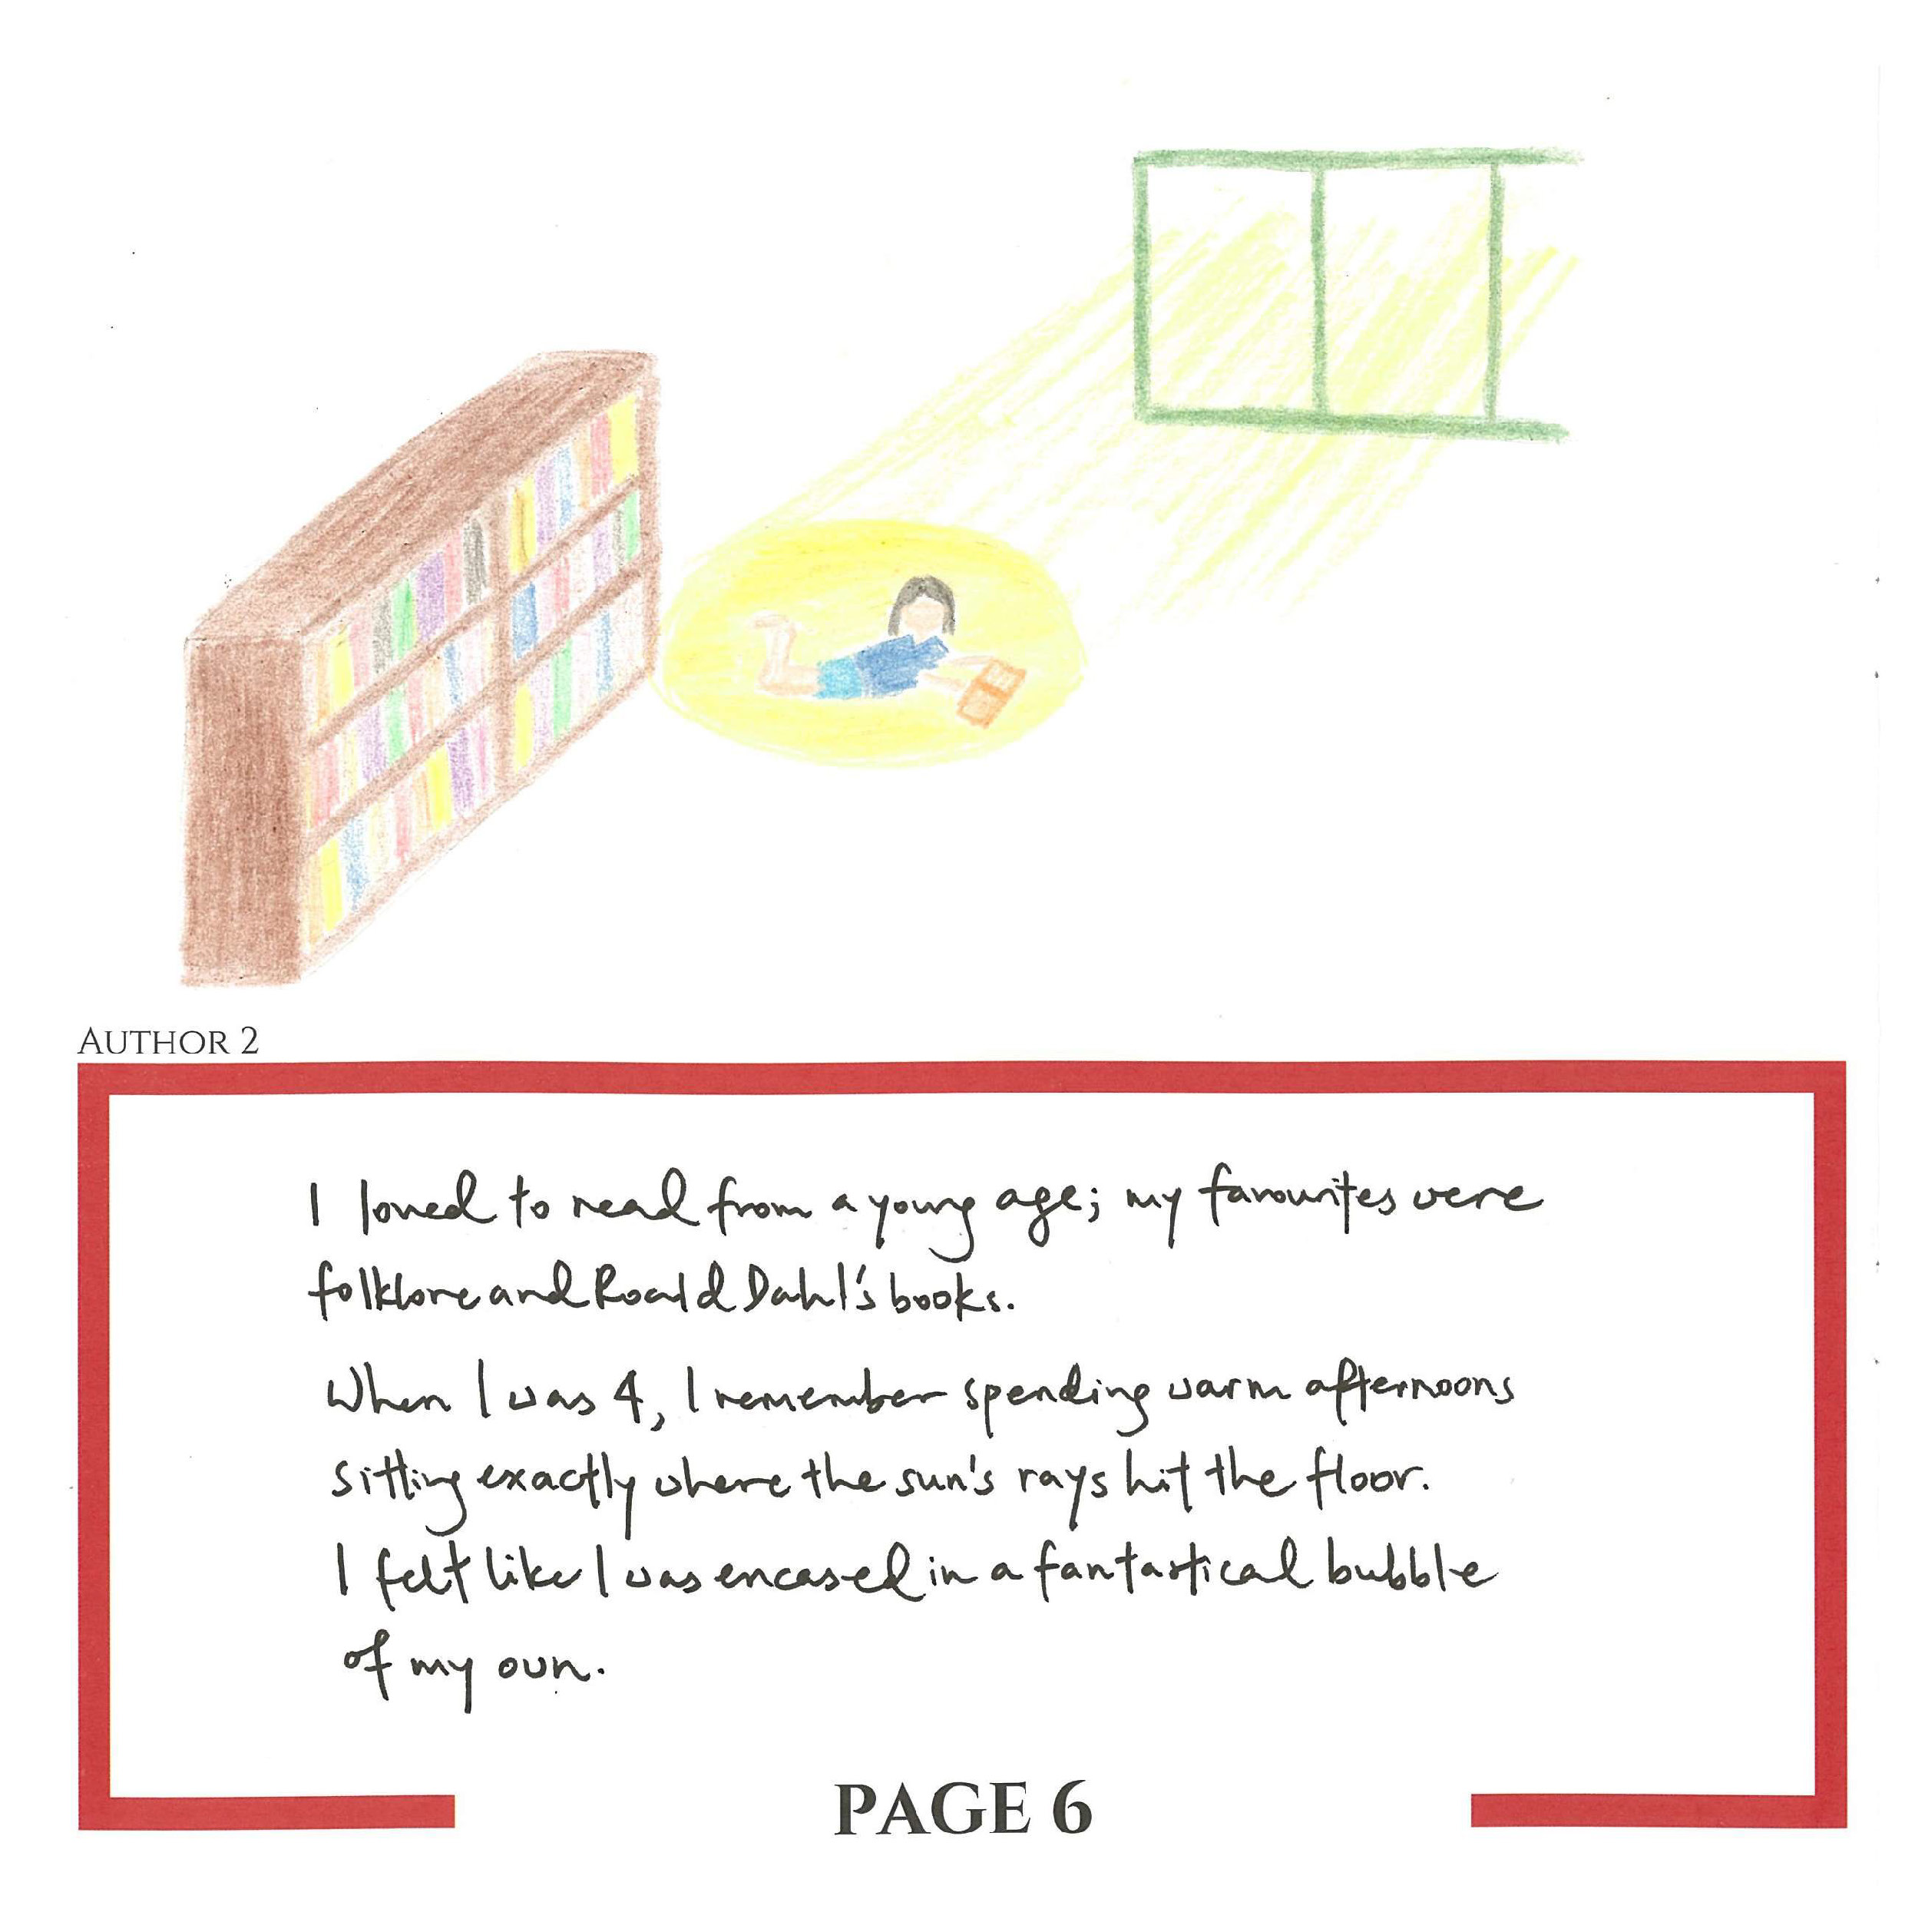 AUTHOR 2
I loved to read from a young age; my favourites were
folklore and Roald Dahl's books.
When I was 4, I remember spending warm afternoons
sitting exactly where the sun's rays hit the floor.
I felt like I was encased in a fantastical bubble
of my own.
PAGE 6